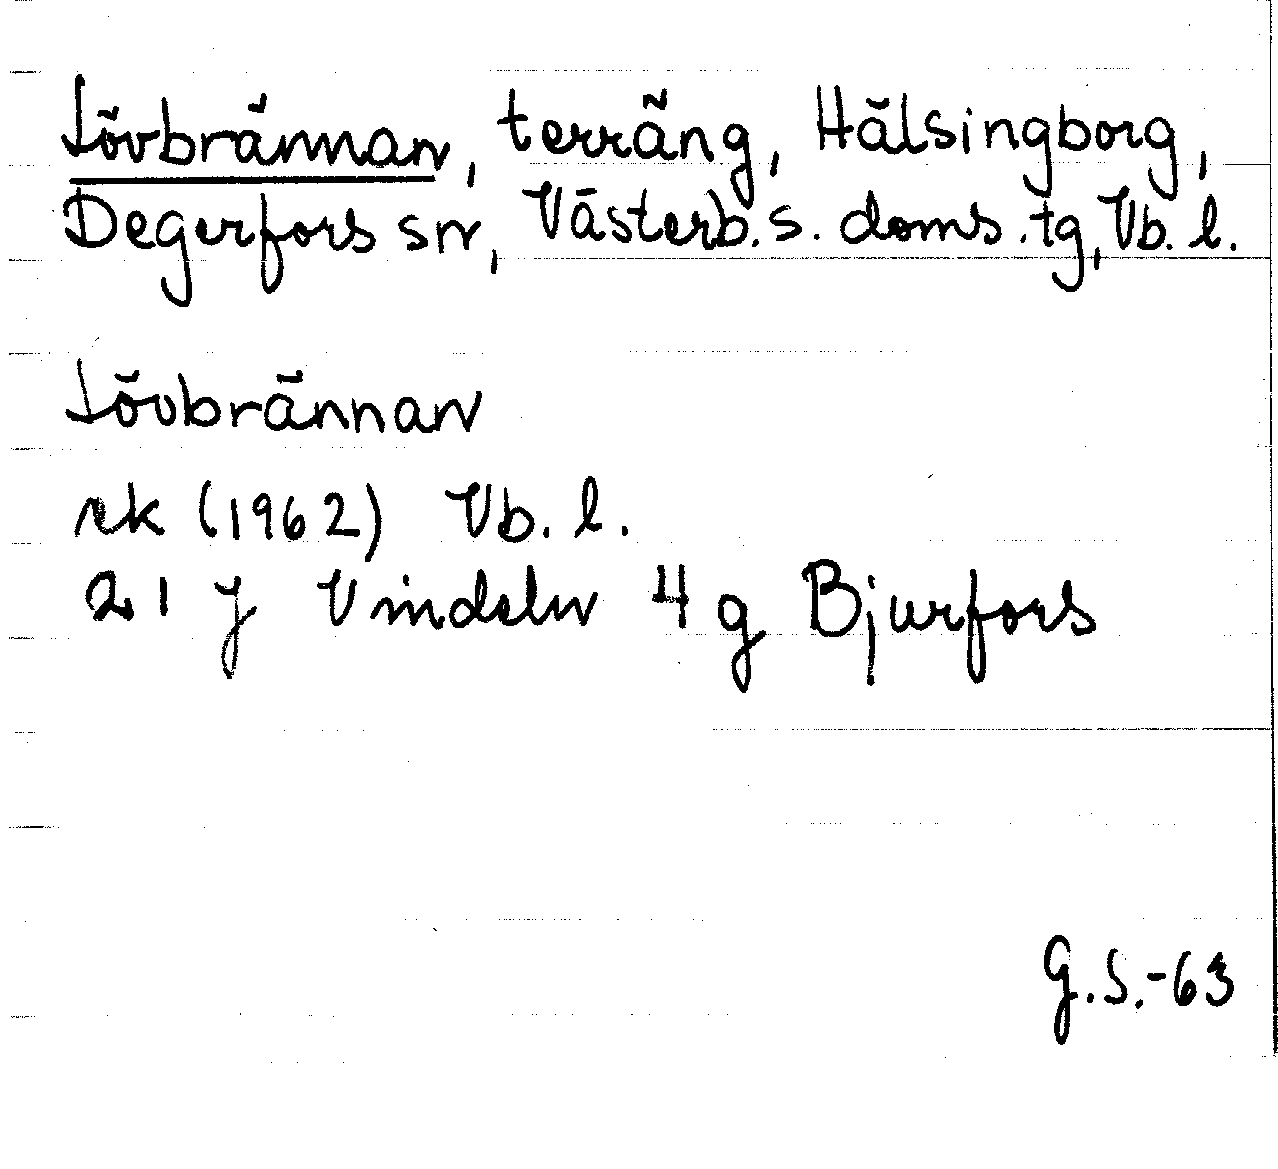 Lövbrännan, terräng, Hälsingborg,
Degerfors sn, Västerb. s. doms.tg, Vb. l.
Lövbrännan
rk (1962) Vb. l.
21 J Vindeln 4 g Bjurfors
G.S.-63